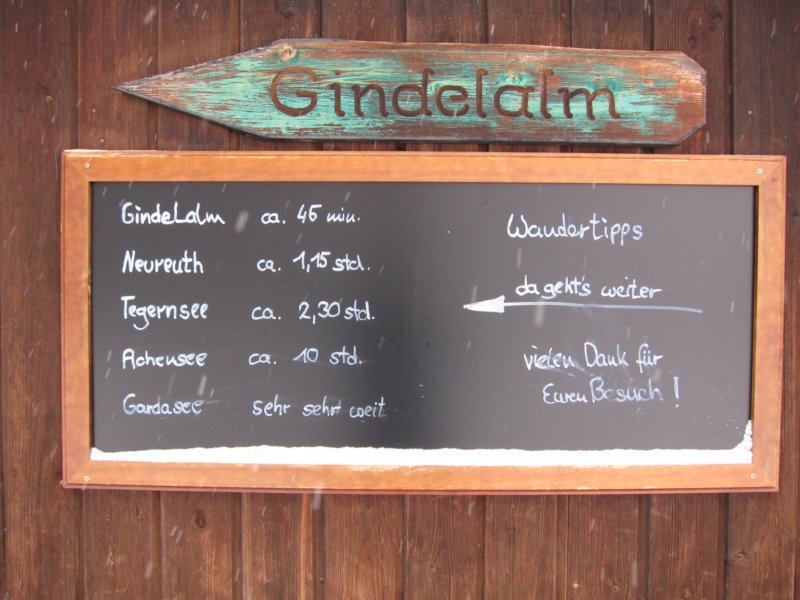 Gindelalm
GindeLalm ca. 45 min.
Neureuth ca. 1,15 std.
Tegernsee ca. 2,30 std.
Achensee ca. 10 std.
Gardasee sehr sehr weit
Wandertipps
da geht's weiter
vielen Dank für
Euren Besuch!